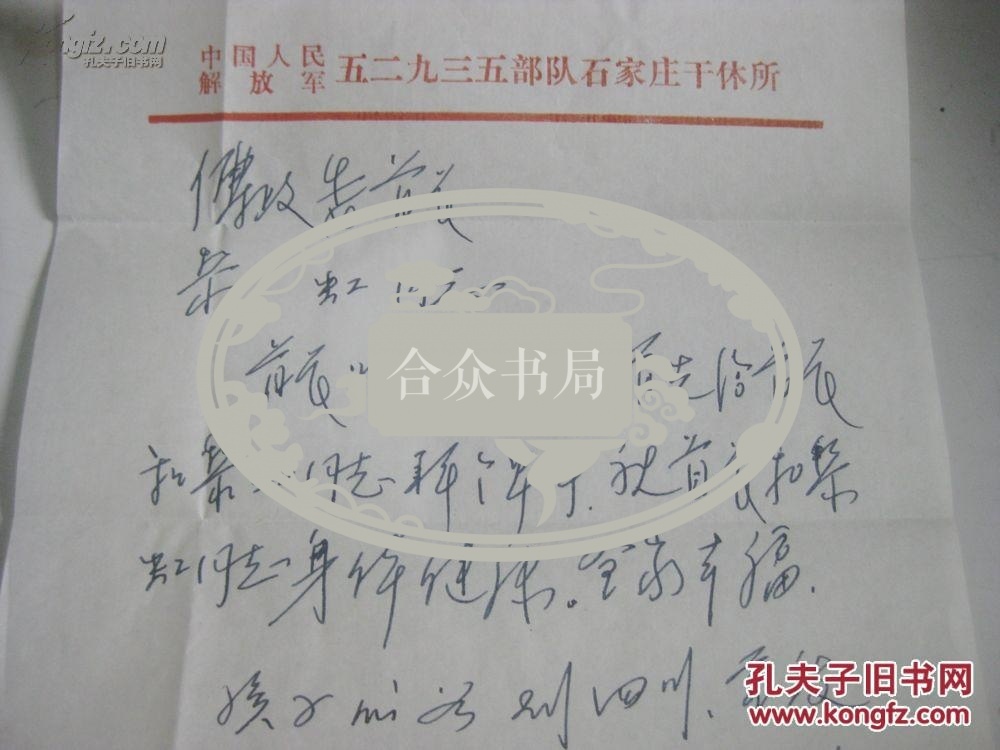 Kongfz.com
孔夫子旧书网
中国人民
解放军 五二九三五部队石家庄干休所
傅政委首长
荣 虹同志
首长 先给首长
和荣 同志拜个年了.祝首长和荣
虹同志身体健康。全家幸福.
孩子 到四川.
合众书局
孔夫子旧书网
www.kongfz.com